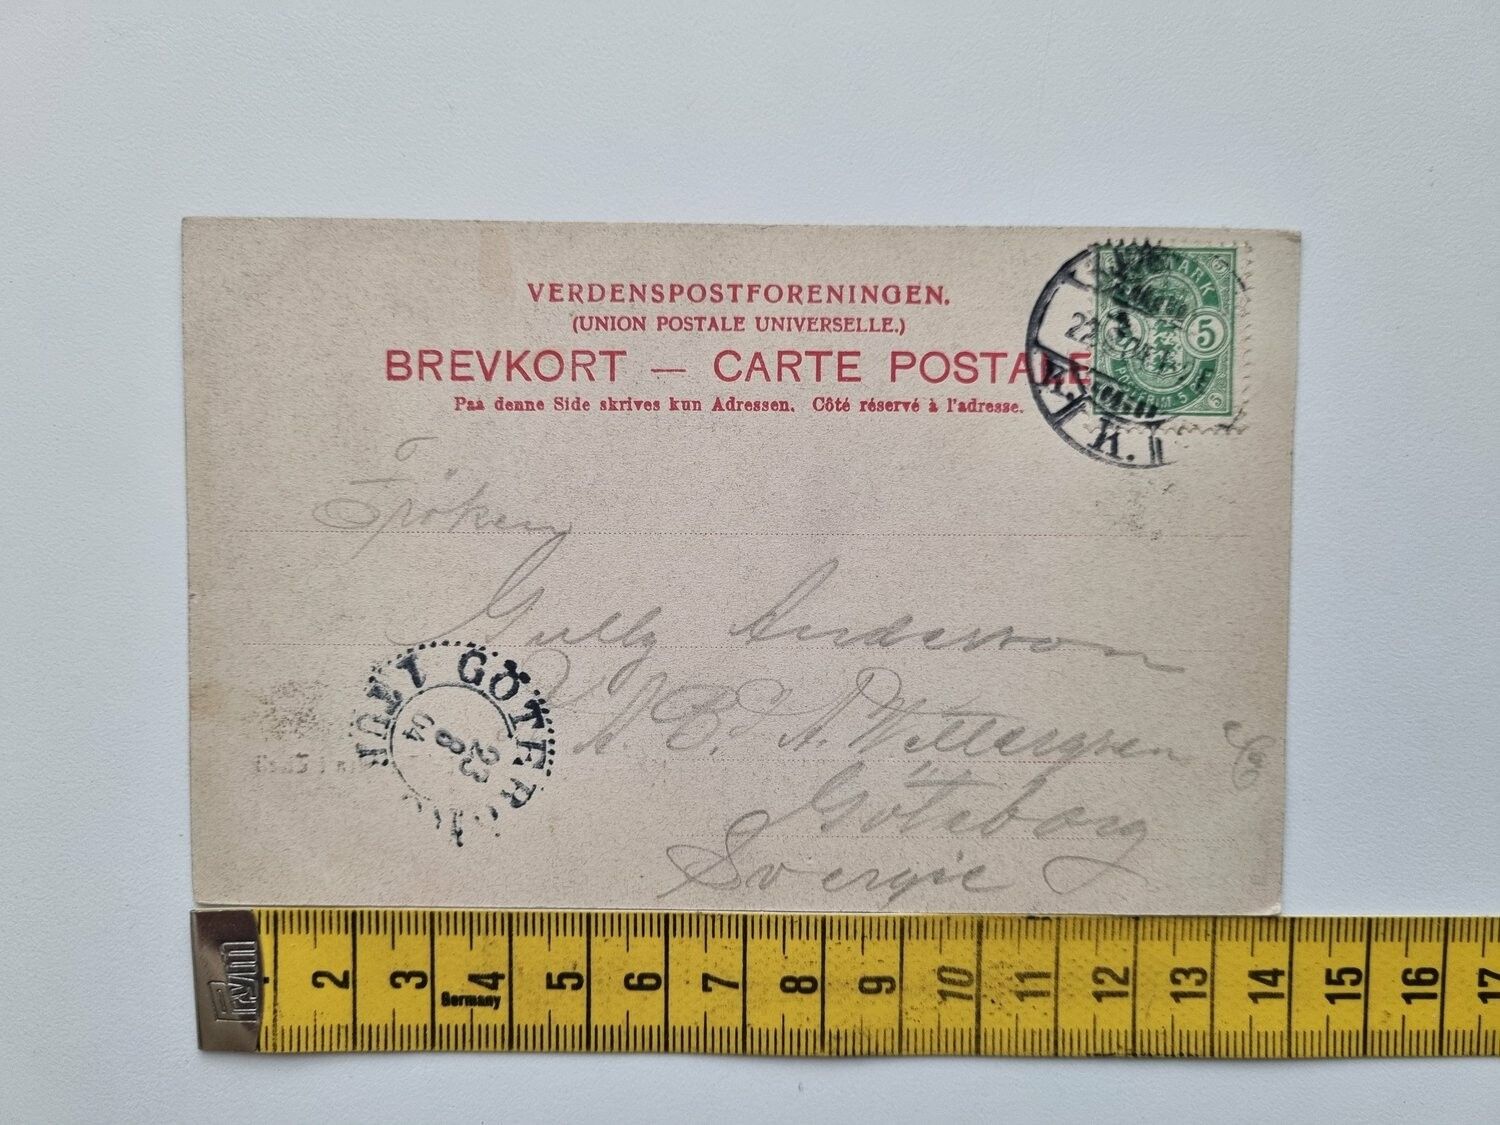 VERDENSPOSTFORENINGEN.
(UNION POSTALE UNIVERSELLE.)
BREVKORT — CARTE POSTALE
Paa denne Side skrives kun Adressen. Côté réservé à l'adresse.
5
POSTFRIM. 5
K.
K.
Fröken
Gully Anderson
A. B. A. Willergren
Göteborg
Sverige
GÖTEBORG
23
8
04
Prym
Germany
1 2 3 4 5 6 7 8 9 10 11 12 13 14 15 16 17